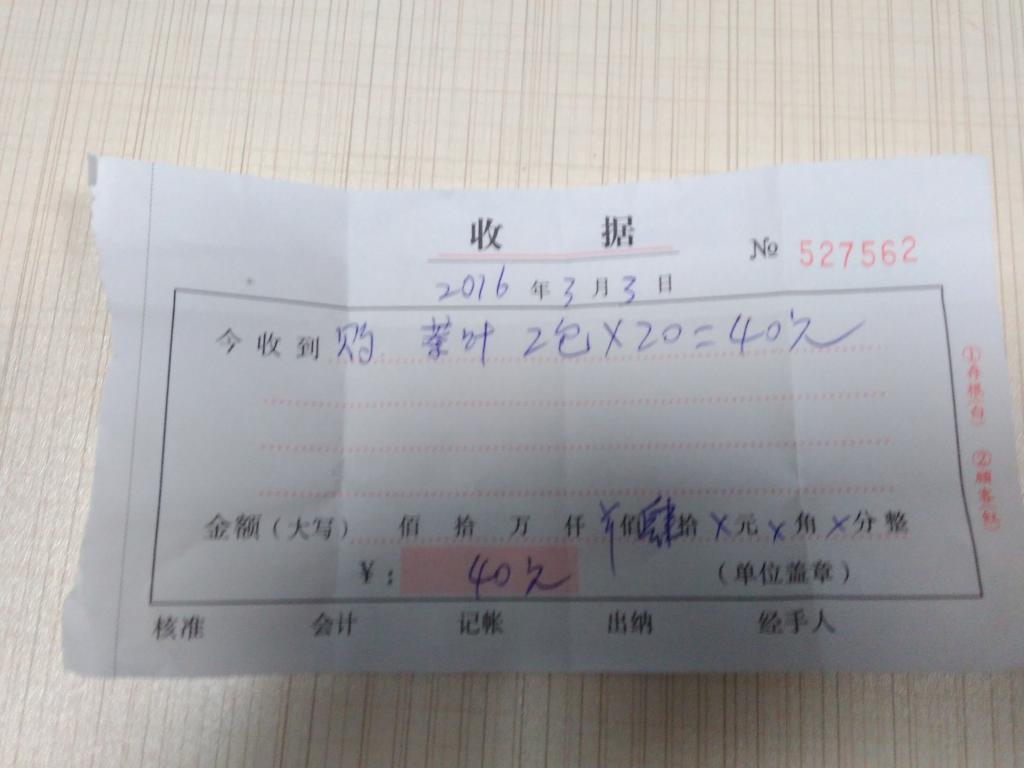 收 据
№ 527562
2016 年 3 月 3 日
今收到 购 茶叶 2包×20=40元
金额（大写） 佰 拾 万 仟 ¥ 佰 肆 拾 × 元 × 角 × 分整
¥： 40元 （单位盖章）
核准 会计 记帐 出纳 经手人
①存根(白) ②顾客(红)